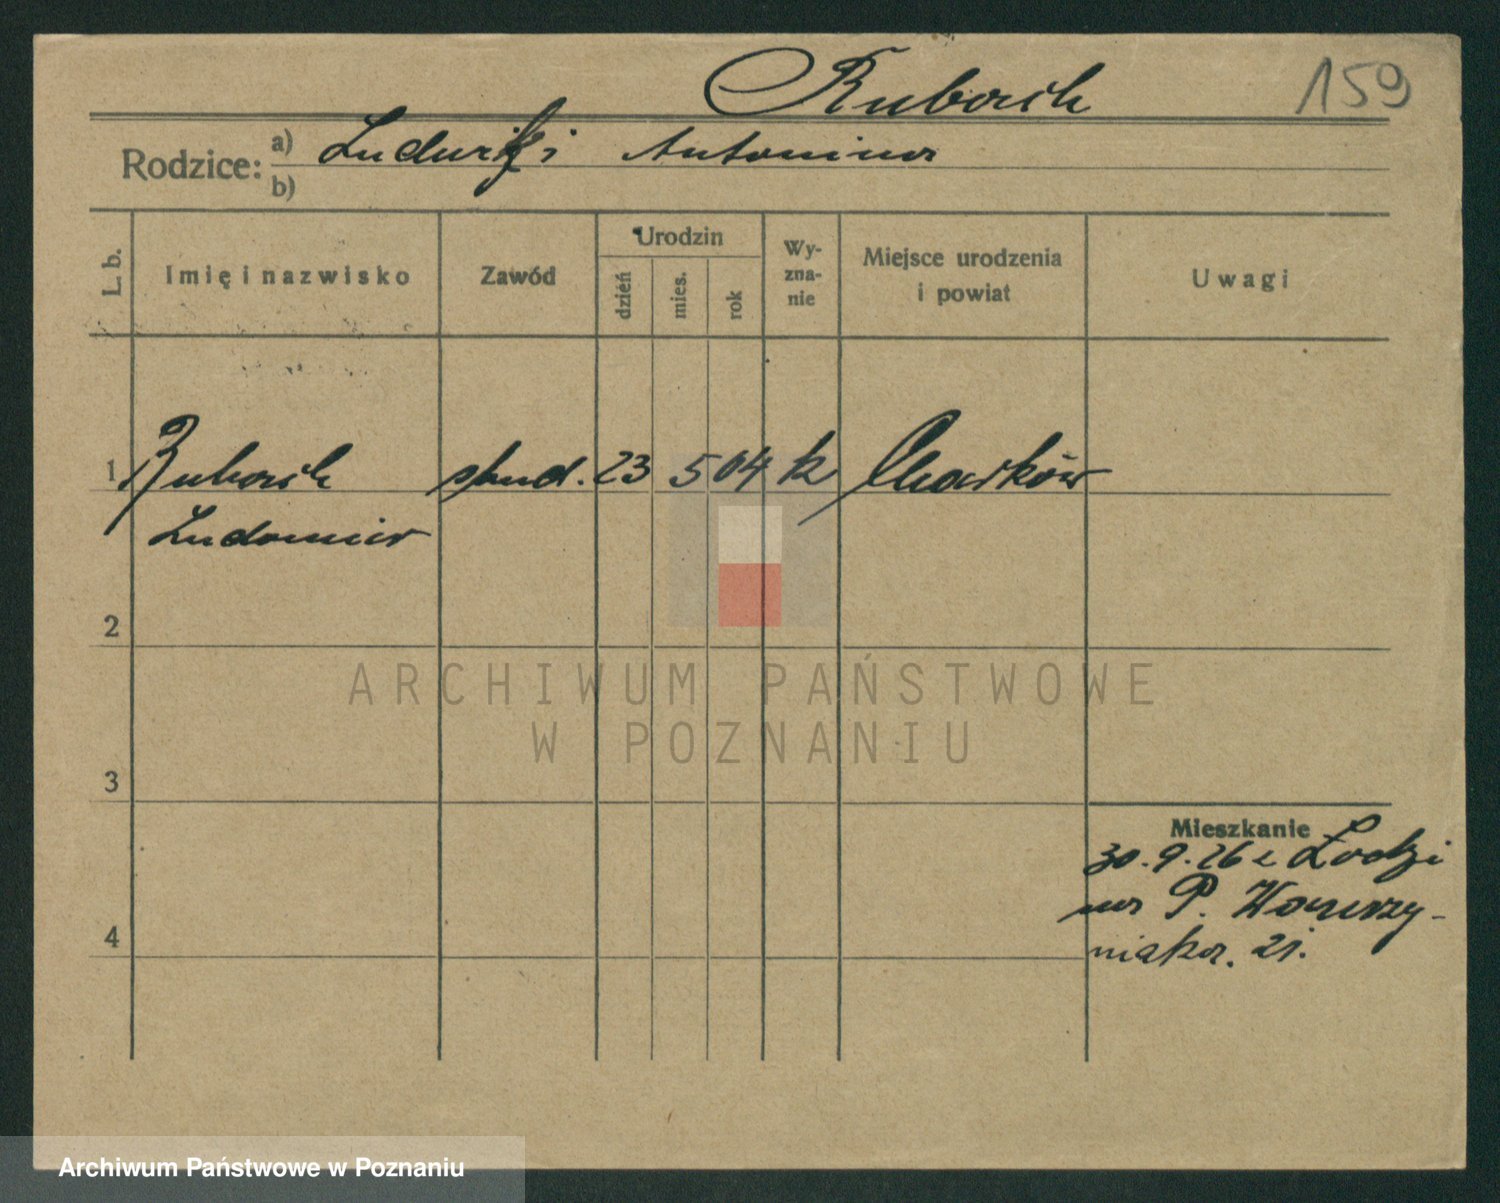 Rubach 159
Rodzice: a) Ludwik i Antonina
b)
L. b. Imię i nazwisko Zawód Urodzin dzień mies. rok Wy-zna-nie Miejsce urodzenia i powiat Uwagi
1 Rubach stud. 23 5 04 k Charków
Ludomir
2
ARCHIWUM PAŃSTWOWE
W POZNANIU
3
Mieszkanie
30.9.26 z Łodzi
na P. Wawrzy-
4 niaka. 21.
Archiwum Państwowe w Poznaniu